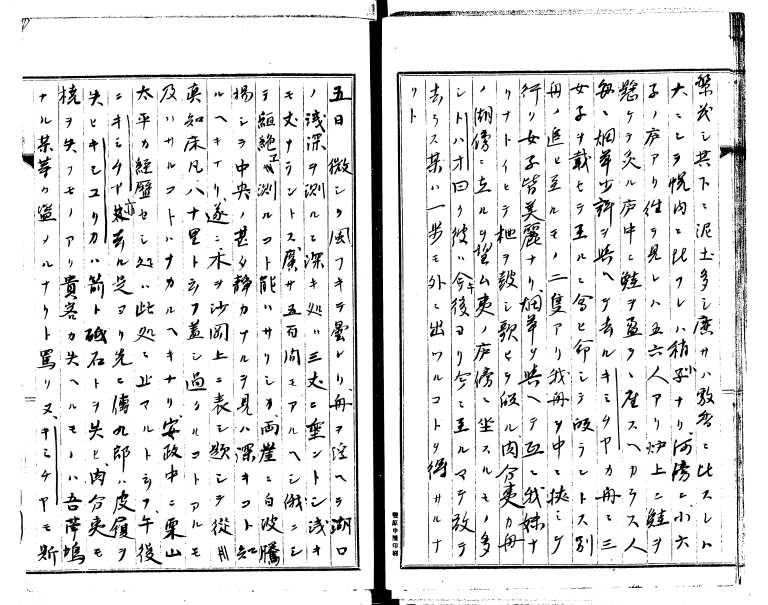 繁茂シ其下ニ泥土多シ廣サハ敦香ニ比スレハ
大ニシヲ幌内ニ比フレハ稍小ナリ河傍ニ小六
子ノ庐アリ往テ見レハ五六人アリ炉上ニ鮭ヲ
懸ケテ灸ル庐中ニ鮭ヲ盈タシ座スヘカラス人
毎ニ烟草少許ヲ與ヘテ去ルキミタヤカ舟ニ三
女子ヲ載セテ至ルニ會ヒ命シテ皈ラントス別
舟ノ追ヒ至ルモノ二隻アリ我舟ヲ中ニ挾ミテ
行リ女子皆美麗ナリ烟草ヲ與ヘテ互ニ我妹ナ
リナトイヒテ枻ヲ鼓シ歌ヒテ皈ル内合夷カ舟
ノ湖傍ニ立ルヲ望ム夷ノ庐傍ニ坐スルモノ多
シトハオ曰ク彼ハ今年後ヨリ今ニ至ルマテ放テ
去ラス某ハ一歩モ外ニ出ツルコトヲ得サルナ
リト
五日微シク風フキテ曇レリ舟ヲ浮ヘテ湖口
ノ浅深ヲ測ルニ深キ処ハ三丈ニ垂ントシ浅キ
モ丈ナラントス廣サ五百間モアルヘシ俄ニシ
テ縆絶エテ測ルコト能ハサリシカ両崖ニ白波騰
揚シテ中央ノ甚タ静カナルヲ見ハ深キコト知
ルヘキナリ遂ニ木ヲ沙岡上ニ表シ題シテ従是
眞知床凡八十里トシフ蓋シ過クルコトアルモ
及ハサルコトハナカルヘキナリ安政中ニ栗山
太平カ經歴セシ処ハ此処ニ止マルトシフ午後
ニキミタヤ亦来去ル是ヨリ先ニ傳九郎ハ皮履ヲ
失ヒキンユリカハ箭ト砥石トヲ失ヒ内合夷モ
桡ヲ失フモノアリ貴客カ失ヘルモノハ吾等鳩
ナル某等ク盗ノルナリト罵リヌキミチヤモ斯